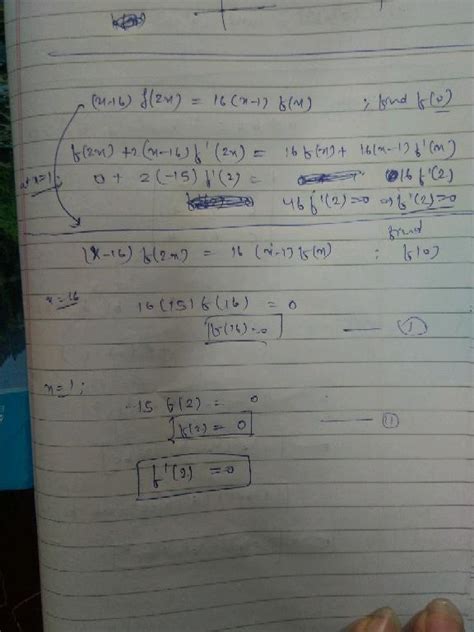 (x-16) f(2x) = 16(x-1) f(x) ; find f(0)
f(2x) + 2(x-16) f'(2x) = 16 f(x) + 16(x-1) f'(x)
x=1; 0 + 2(-15) f'(2) = 16 f'(2)
46 f'(2)=0 ⇒ f'(2)=0
find
(x-16) f(2x) = 16 (x-1) f(x) ; f(0)
x=16 16(15) f(16) = 0
f(16)=0 — (I)
x=1;
-15 f(2) = 0
f(2) = 0 — (II)
f'(2) = 0